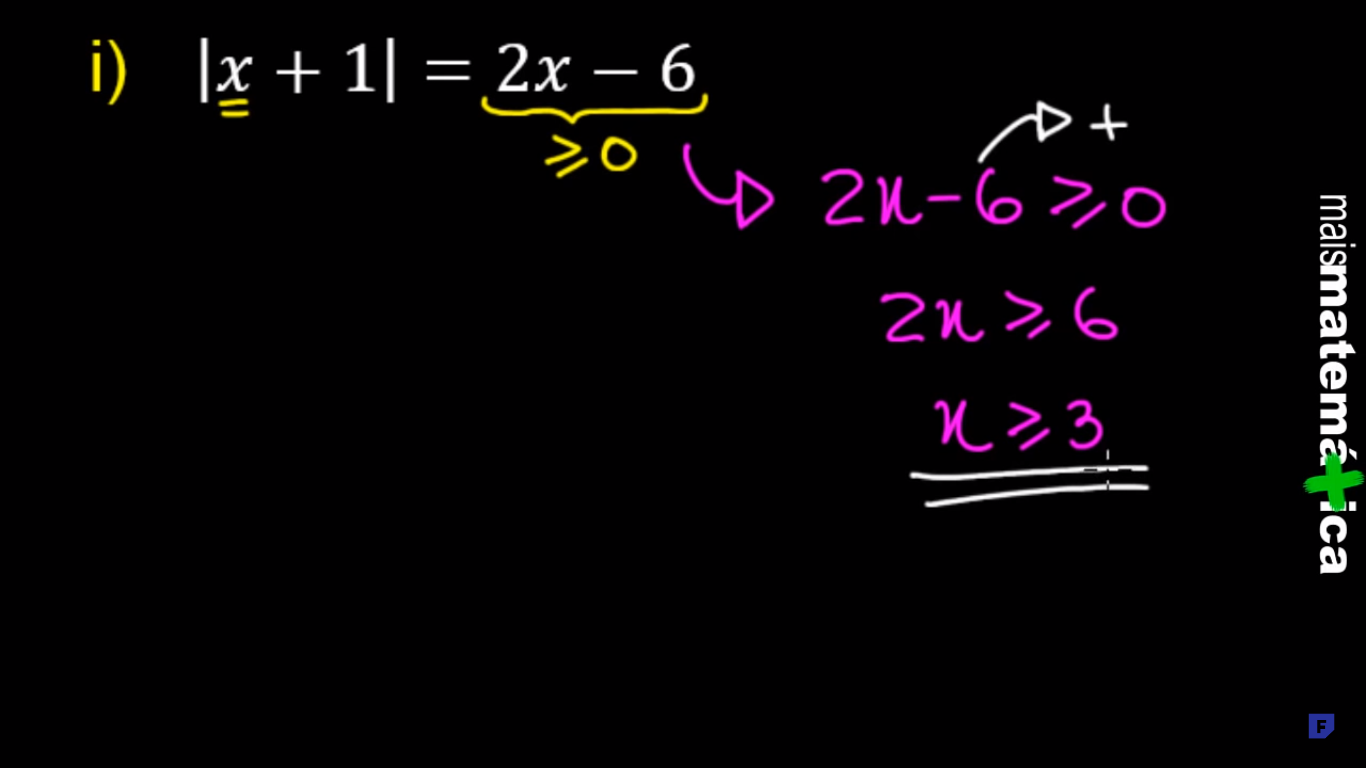 i) |x + 1| = 2x − 6
≥ 0
+
2x − 6 ≥ 0
2x ≥ 6
x ≥ 3
maismatemá+ica
F